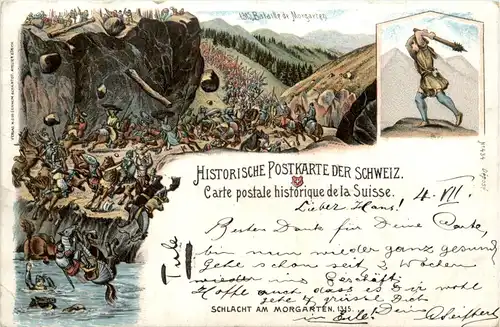 1315 Bataille de Morgarten
HISTORISCHE POSTKARTE DER SCHWEIZ.
Carte postale historique de la Suisse.
Lieber Hans! 4. VII.
Besten Dank für Deine Carte,
bin nun wieder ganz gesund,
Gehe schon seit 3 Wochen
wieder ins Geschäft.
Hoffe auch dass es Dir wohl
gehe & grüsse Dich
Dein
SCHLACHT AM MORGARTEN. 1315.
in Eile! Pfeiffer